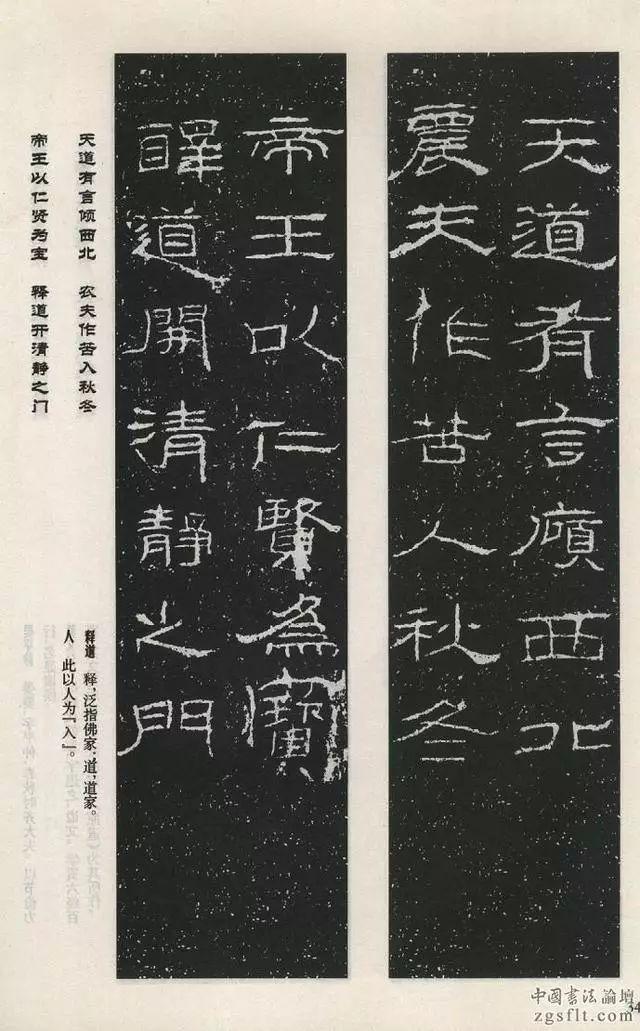 天道有言傾西北
農夫作苦人秋冬
帝王以仁賢為寶
釋道開清靜之門
天道有言倾西北 农夫作苦入秋冬
帝王以仁贤为宝 释道开清静之门
释道 释，泛指佛家。道，道家。
人 此以人为「入」。
中國書法論壇
zgsflt.com